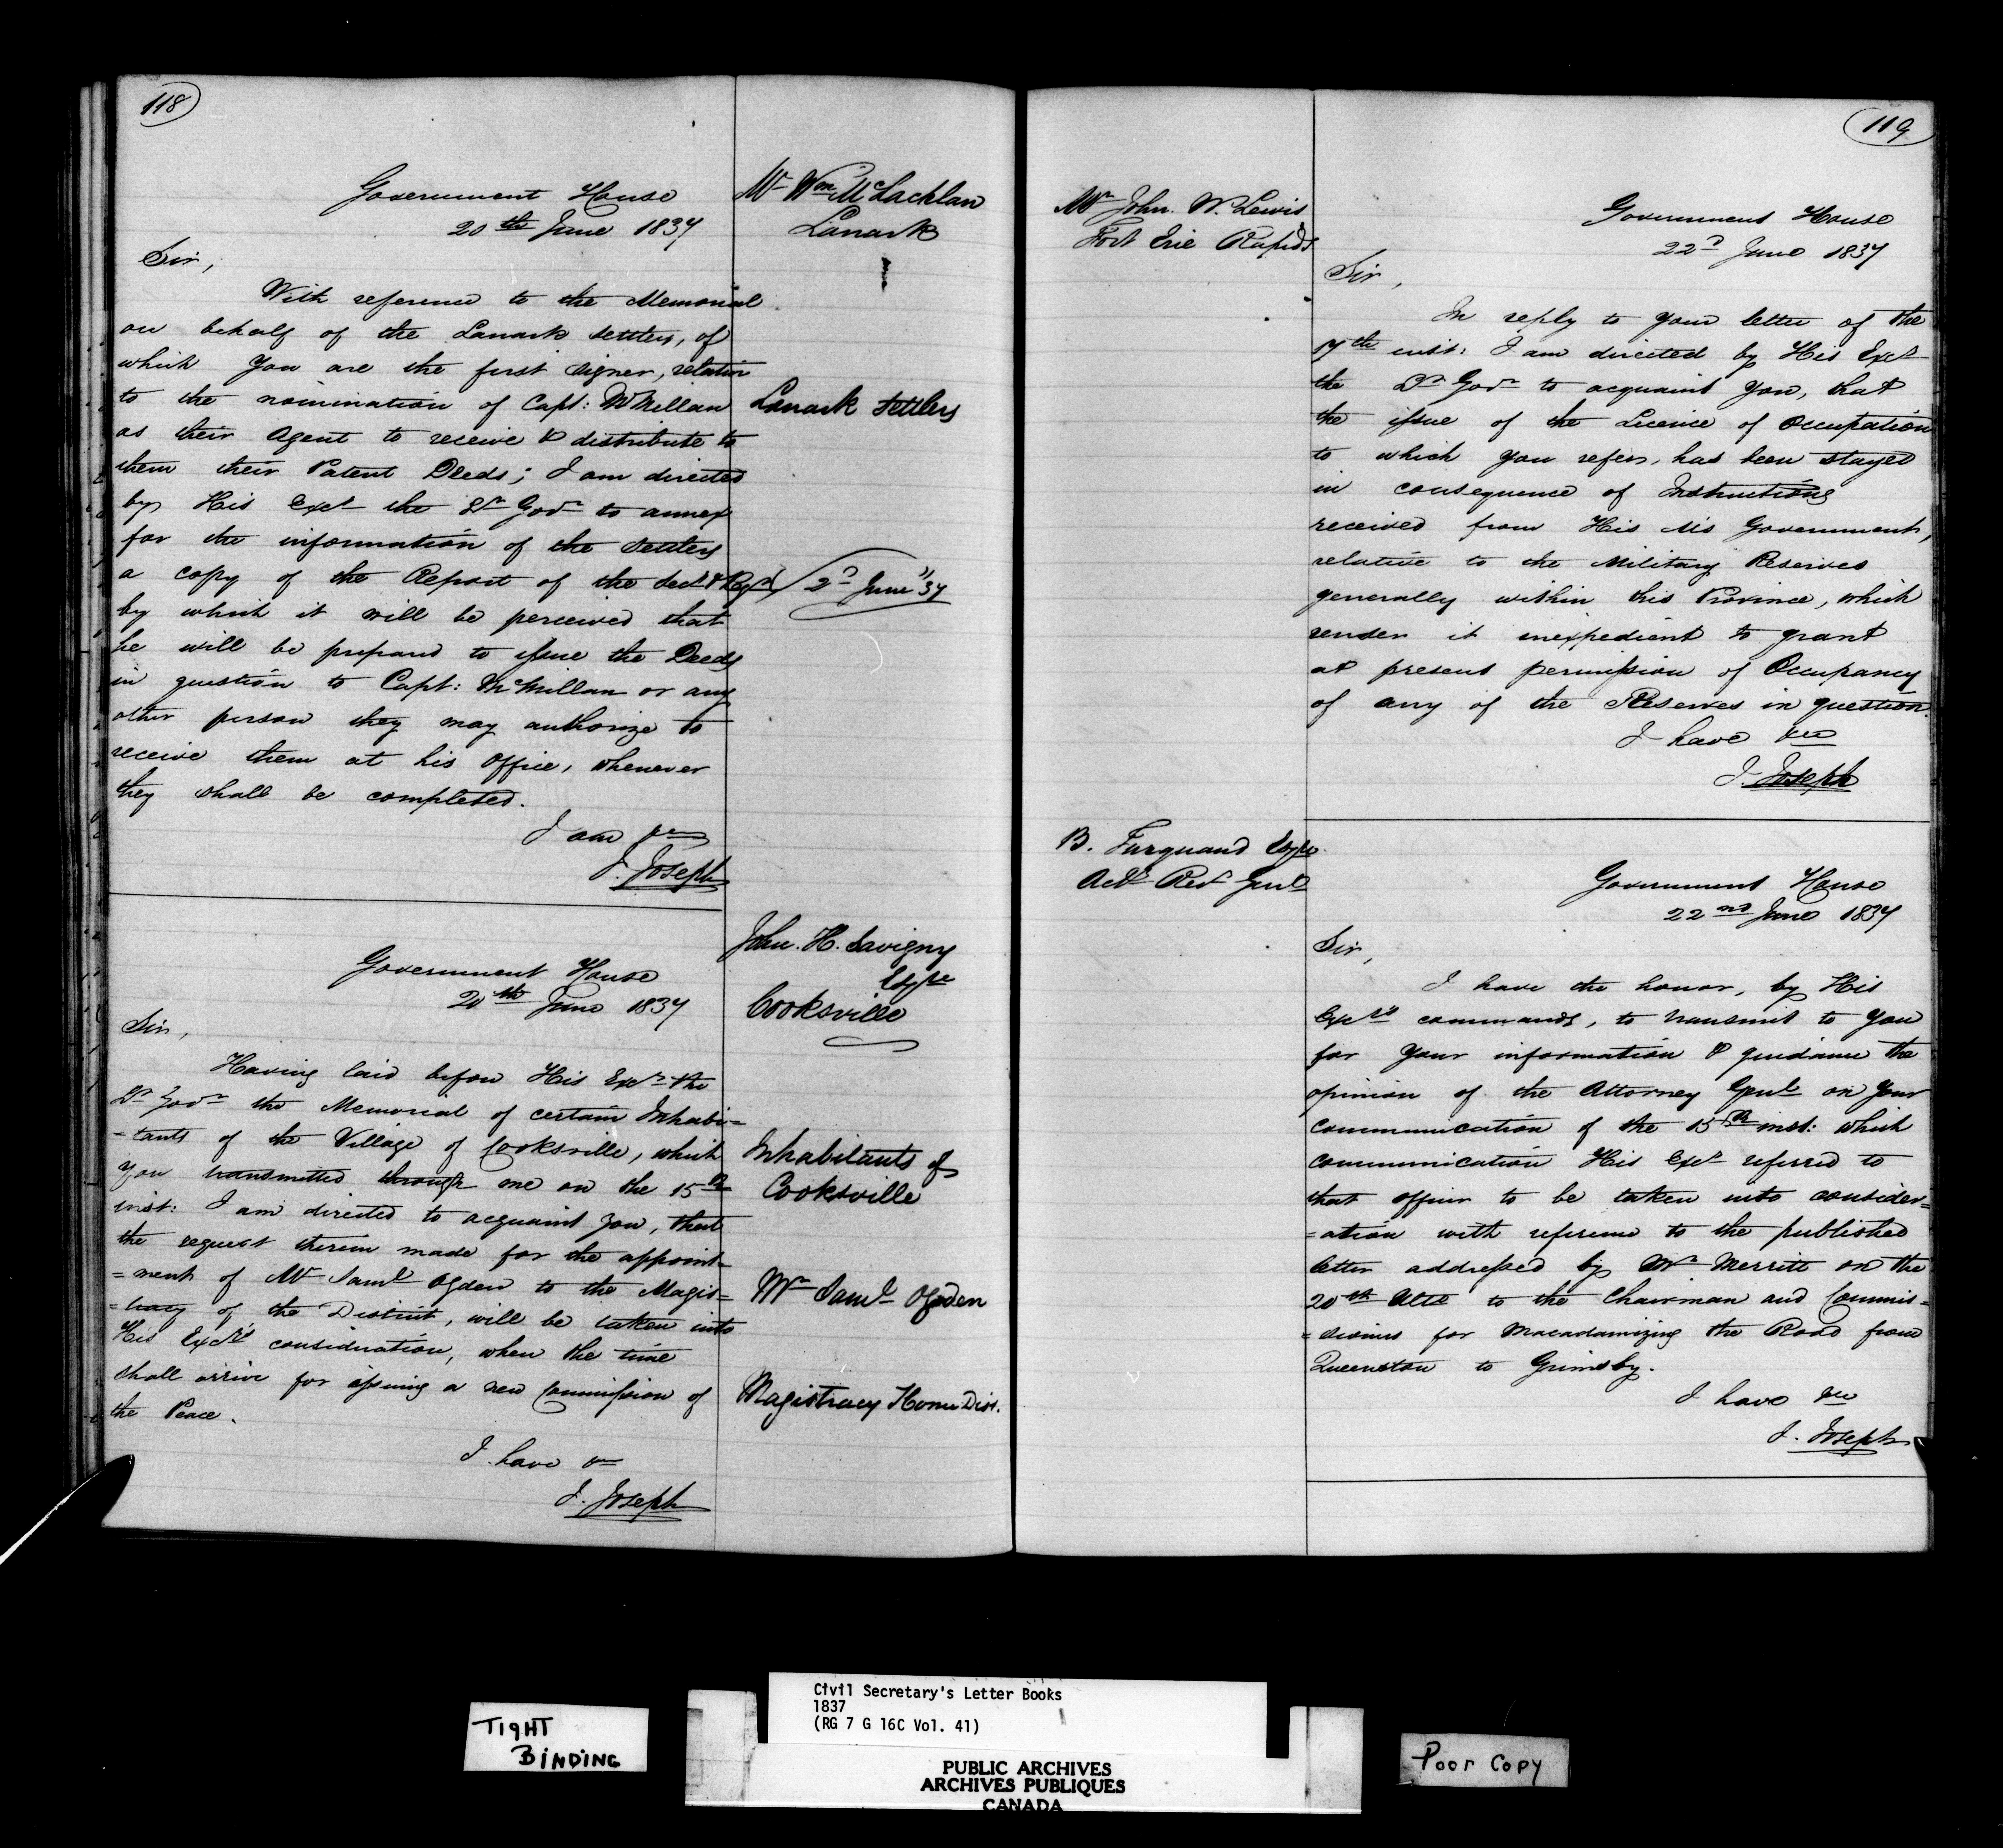 118
Government House
20th June 1837
Mr Wm McLachlan
Lanark
Sir,
With reference to the Memorial
on behalf of the Lanark settlers, of
which You are the first signer, relative
to the nomination of Capt: McMillan
Lanark settlers
as their Agent to receive & distribute to
them their Patent Deeds; I am directed
by His Excy the Lt Govr to annex
for the information of the settlers
a copy of the Report of the Secy & Regr
2d June "37
by which it will be perceived that
he will be prepared to issue the Deeds
in question to Capt: McMillan or any
other person they may authorize to
receive them at his office, whenever
they shall be completed.
I am &c
J. Joseph
John. H. Savigny
Esqre
Cooksville
Government House
20th June 1837
Sir,
Having laid before His Excy the
Lt Govr the Memorial of certain Inhabi-
-tants of the Village of Cooksville, which
Inhabitants of
Cooksville
You transmitted through me on the 15th
inst: I am directed to acquaint you, that
the request therein made for the appoint-
=ment of Mr Saml Ogden to the Magis=
Mr Saml Ogden
=tracy of the District, will be taken into
His Excy's consideration, when the time
shall arrive for issuing a new Commission of
Magistracy Home Dist.
the Peace.
I have &c
J. Joseph
119
Mr John. W. Lewis
Fort Erie Rapids
Government House
22d June 1837
Sir,
In reply to your letter of the
17th inst: I am directed by His Excy
the Lt Govr to acquaint You, that
the issue of the Licence of Occupation
to which you refer, has been stayed
in consequence of Instructions
received from His M's Government,
relative to the Military Reserves
generally within this Province, which
render it inexpedient to grant
at present permission of Occupancy
of any of the Reserves in question.
I have &c
J. Joseph
B. Turquand Esqre
Actg Recr Genl
Government House
22nd June 1837
Sir,
I have the honor, by His
Excy's commands, to transmit to You
for Your information & guidance the
opinion of the Attorney Genl on your
communication of the 15th inst: which
communication His Excy referred to
that officer to be taken into consider=
=ation with reference to the published
letter addressed by Mr Merritt on the
20th Ulto to the Chairman and Commis=
=sioners for Macadamizing the Road from
Queenston to Grimsby.
I have &c
J. Joseph
TIGHT
BINDING
Civil Secretary's Letter Books
1837
(RG 7 G 16C Vol. 41)
PUBLIC ARCHIVES
ARCHIVES PUBLIQUES
CANADA
Poor Copy